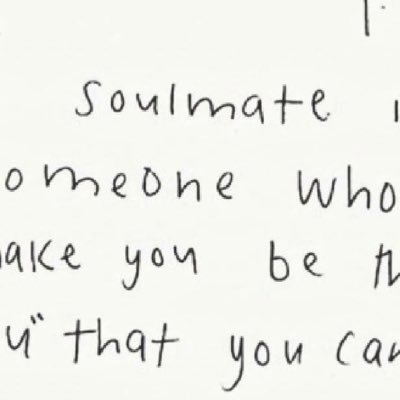 soulmate i
omeone who
ake you be th
u" that you can